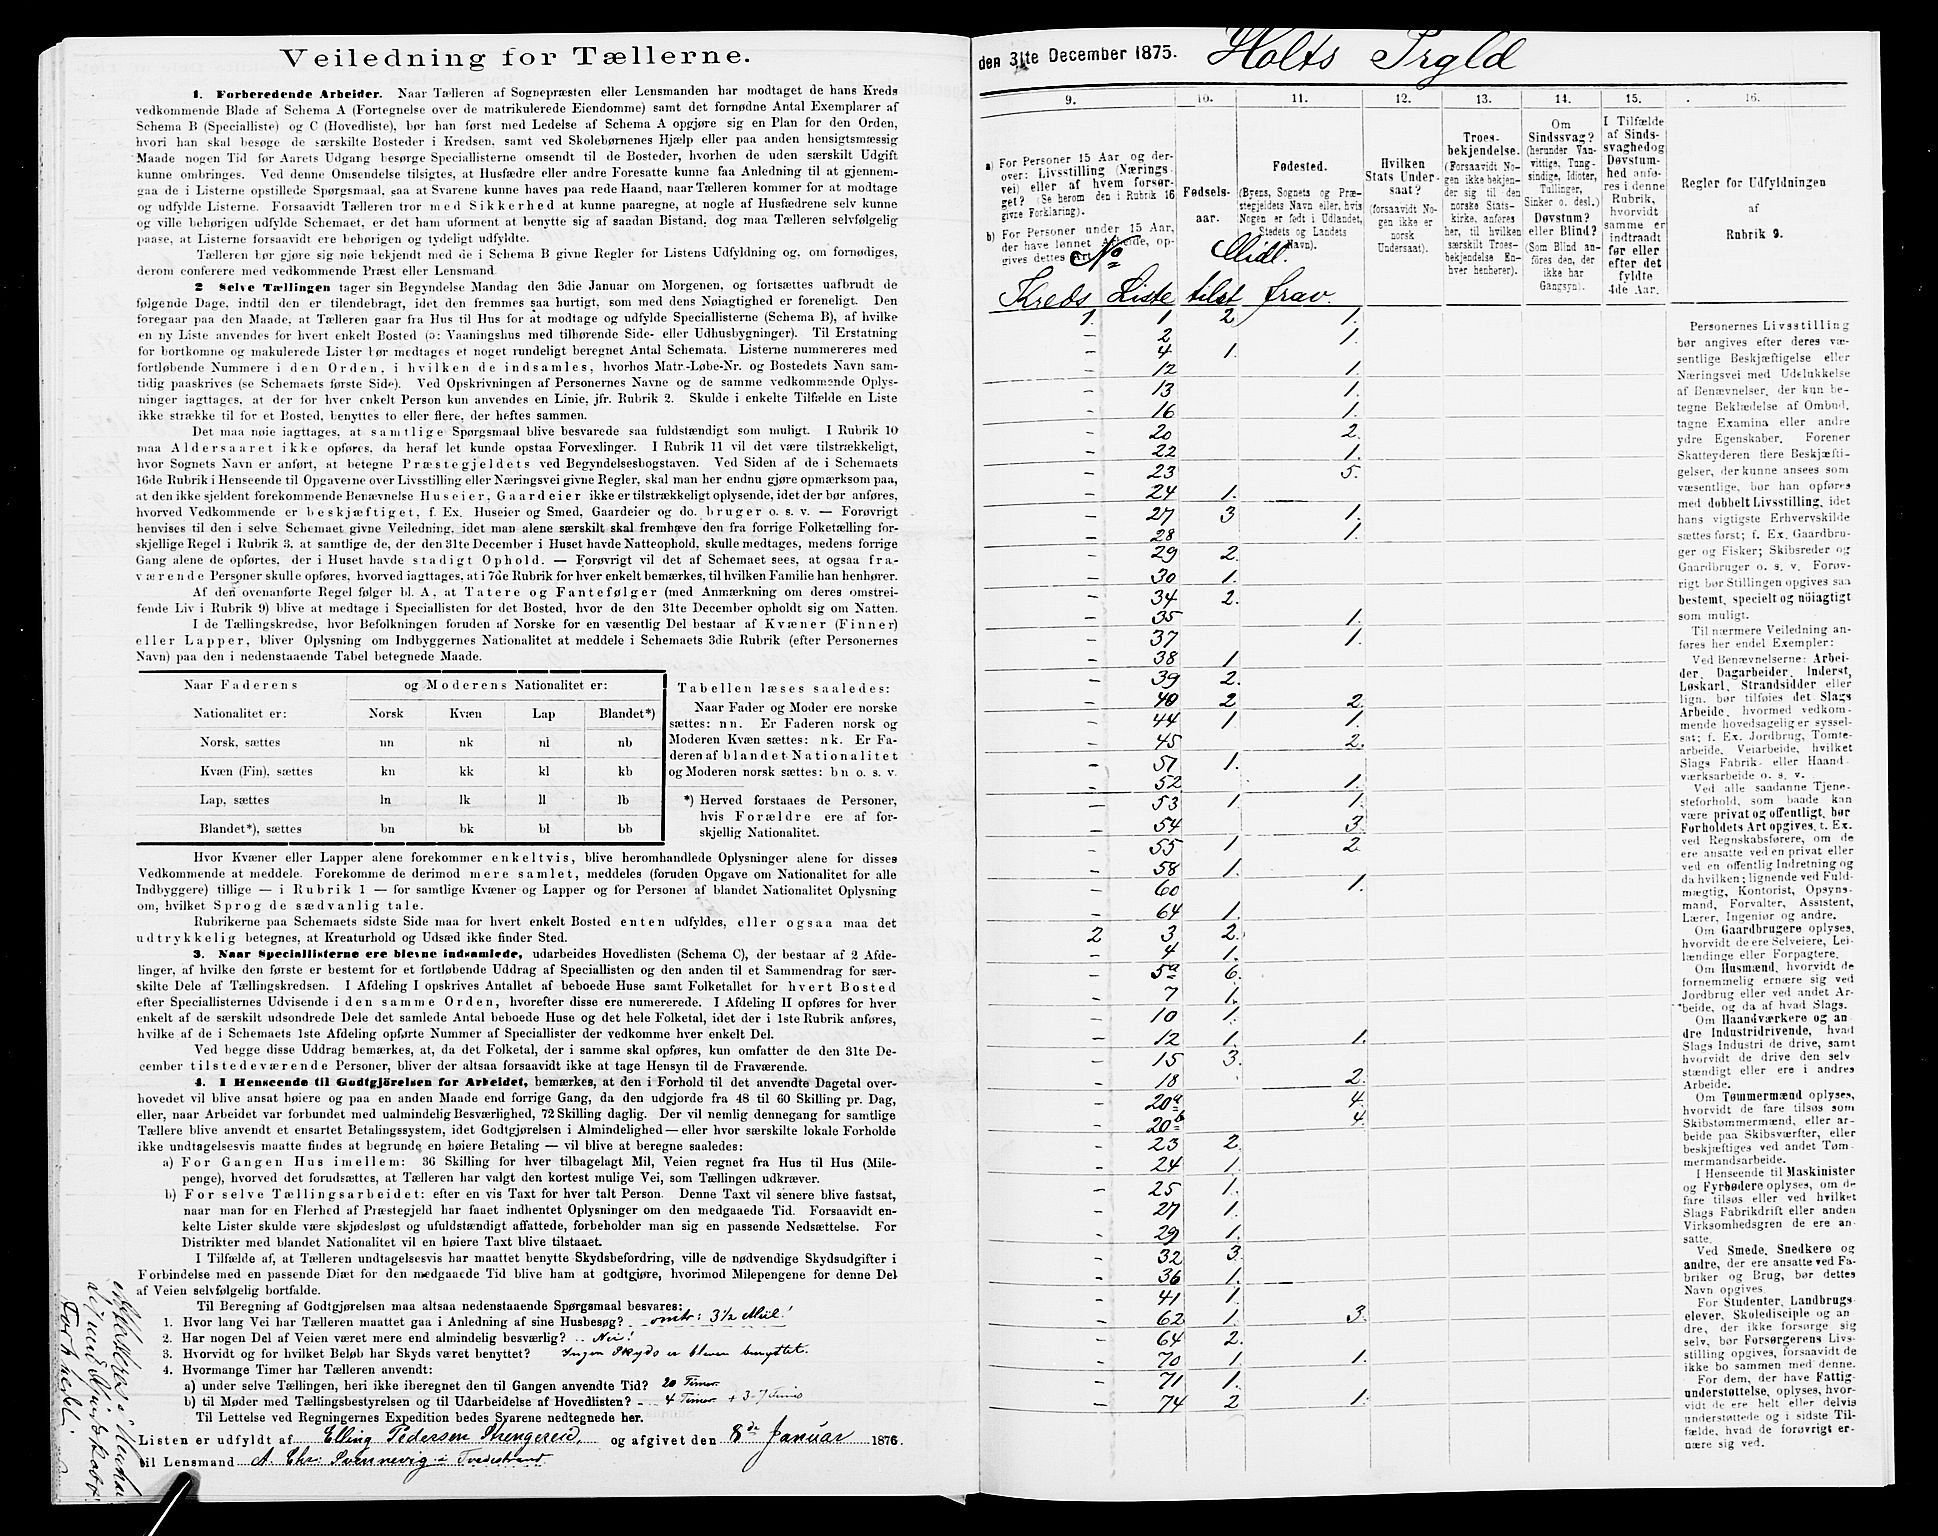 Veiledning for Tællerne.
1. Forberedende Arbeider. Naar Tælleren af Sognepræsten eller Lensmanden har modtaget de hans Kreds
vedkommende Blade af Schema A (Fortegnelse over de matrikulerede Eiendomme) samt det fornødne Antal Exemplarer af
Schema B (Specialliste) og C (Hovedliste), bør han først med Ledelse af Schema A opgjøre sig en Plan for den Orden,
hvori han skal besøge de særskilte Bosteder i Kredsen, samt ved Skolebørnenes Hjælp eller paa anden hensigtsmæssig
Maade nogen Tid før Aarets Udgang besørge Speciallisterne omsendt til de Bosteder, hvorhen de uden særskilt Udgift
kunne ombringes. Ved denne Omsendelse tilsigtes, at Husfædre eller andre Foresatte kunne faa Anledning til at gjennem-
gaa de i Listerne opstillede Spørgsmaal, saa at Svarene kunne haves paa rede Haand, naar Tælleren kommer for at modtage
og udfylde Listerne. Forsaavidt Tælleren tror med Sikkerhed at kunne paaregne, at nogle af Husfædrene selv kunne
og ville behørigen udfylde Schemaet, er det ham uforment at benytte sig af saadan Bistand, dog maa Tælleren selvfølgelig
paase, at Listerne forsaavidt ere behørigen og tydeligt udfyldte.
Tælleren bør gjøre sig nøie bekjendt med de i Schema B givne Regler for Listens Udfyldning og, om fornødiges,
derom conferere med vedkommende Præst eller Lensmand.
2 Selve Tællingen tager sin Begyndelse Mandag den 3die Januar om Morgenen, og fortsættes uafbrudt de
følgende Dage, indtil den er tilendebragt, idet den fremmes saa hurtigt, som med dens Nøiagtighed er foreneligt. Den
foregaar paa den Maade, at Tælleren gaar fra Hus til Hus for at modtage og udfylde Speciallisterne (Schema B), af hvilke
en ny Liste anvendes for hvert enkelt Bosted (ɔ: Vaaningshus med tilhørende Side- eller Udhusbygninger). Til Erstatning
for bortkomne og makulerede Lister bør medtages et noget rundeligt beregnet Antal Schemata. Listerne nummereres med
fortløbende Nummere i den Orden, i hvilken de indsamles, hvorhos Matr.-Løbe-Nr. og Bostedets Navn sam-
tidig paaskrives (se Schemaets første Side). Ved Opskrivningen af Personernes Navne og de samme vedkommende Oplys-
ninger iagttages, at der for hver enkelt Person kun anvendes en Linie, jfr. Rubrik 2. Skulde i enkelte Tilfælde en Liste
ikke strække til for et Bosted, benyttes to eller flere, der heftes sammen.
Det maa nøie iagttages, at samtlige Spørgsmaal blive besvarede saa fuldstændigt som muligt. I Rubrik 10
maa Aldersaaret ikke opføres, da heraf let kunde opstaa Forvexlinger. I Rubrik 11 vil det være tilstrækkeligt,
hvor Sognets Navn er anført, at betegne Præstegjeldets ved Begyndelsesbogstaven. Ved Siden af de i Schemaets
16de Rubrik i Henseende til Opgaverne over Livsstilling eller Næringsvei givne Regler, skal man her endnu gjøre opmærksom paa,
at den ikke sjeldent forekommende Benævnelse Huseier, Gaardeier ikke er tilstrækkeligt oplysende, idet der bør anføres,
hvorved Vedkommende er beskjæftiget, f. Ex. Huseier og Smed, Gaardeier og do. bruger o. s. v. — Forøvrigt
henvises til den i selve Schemaet givne Veiledning, idet man alene særskilt skal fremhæve den fra forrige Folketælling for-
skjellige Regel i Rubrik 3, at samtlige de, der den 31te December i Huset havde Natteophold, skulle medtages, medens forrige
Gang alene de opførtes, der i Huset havde stadigt Ophold. — Forøvrigt vil det af Schemaet sees, at ogsaa fra-
værende Personer skulle opføres, hvorved iagttages, at i 7de Rubrik for hver enkelt bemærkes, til hvilken Familie han henhører.
Af den ovenanførte Regel følger bl. A. at Tatere og Fantefølger (med Anmærkning om deres omstrei-
fende Liv i Rubrik 9) blive at medtage i Speciallisten for det Bosted, hvor de den 31te December opholdt sig om Natten.
I de Tællingskredse, hvor Befolkningen foruden af Norske for en væsentlig Del bestaar af Kvæner (Finner)
eller Lapper, bliver Oplysning om Indbyggernes Nationalitet at meddele i Schemaets 3die Rubrik (efter Personernes
Navn) paa den i nedenstaaende Tabel betegnede Maade.
Naar Faderens og Moderens Nationalitet er:
Nationalitet er: Norsk Kvæn Lap Blandet*)
Norsk, sættes nn nk nl nb
Kvæn (Fin), sættes kn kk kl kb
Lap, sættes ln lk ll lb
Blandet*), sættes bn bk bl bb
Tabellen læses saaledes:
Naar Fader og Moder ere norske
sættes: nn. Er Faderen norsk og
Moderen Kvæn sættes: nk. Er Fa-
deren af blandet Nationalitet
og Moderen norsk sættes: bn o. s. v.
*) Herved forstaaes de Personer,
hvis Forældre ere af for-
skjellig Nationalitet.
Hvor Kvæner eller Lapper alene forekommer enkeltvis, blive heromhandlede Oplysninger alene for disses
Vedkommende at meddele. Forekomme de derimod mere samlet, meddeles (foruden Opgave om Nationalitet for alle
Indbyggere) tillige — i Rubrik 1 — for samtlige Kvæner og Lapper og for Personer af blandet Nationalitet Oplysning
om, hvilket Sprog de sædvanlig tale.
Rubrikerne paa Schemaets sidste Side maa for hvert enkelt Bosted enten udfyldes, eller ogsaa maa det
udtrykkelig betegnes, at Kreaturhold og Udsæd ikke finder Sted.
3. Naar Speciallisterne ere blevne indsamlede, udarbeides Hovedlisten (Schema C), der bestaar af 2 Afde-
linger, af hvilke den første er bestemt for et fortløbende Uddrag af Speciallisten og den anden til et Sammendrag for sær-
skilte Dele af Tællingskredsen. I Afdeling I opskrives Antallet af beboede Huse samt Folketallet for hvert Bosted
efter Speciallisternes Udvisende i den samme Orden, hvorefter disse ere numererede. I Afdeling II opføres for hver
enkelt af de særskilt udsondrede Dele det samlede Antal beboede Huse og det hele Folketal, idet der i 1ste Rubrik anføres,
hvilke af de i Schemaets 1ste Afdeling opførte Nummer af Speciallister der vedkomme hver enkelt Del.
Ved begge disse Uddrag bemærkes, at, da det Folketal, der i samme skal opføres, kun omfatter de den 31te De-
cember tilstedeværende Personer, bliver der altsaa forsaavidt ikke at tage Hensyn til de Fraværende.
4. I Henseende til Godtgjörelsen for Arbeidet, bemærkes, at den i Forhold til det anvendte Dagetal over-
hovedet vil blive ansat høiere og paa en anden Maade end forrige Gang, da den udgjorde fra 48 til 60 Skilling pr. Dag,
eller, naar Arbeidet var forbundet med ualmindelig Besværlighed, 72 Skilling daglig. Der vil nemlig dennegang for samtlige
Tællere blive anvendt et ensartet Betalingssystem, idet Godtgjörelsen i Almindelighed — eller hvor særskilte lokale Forholde
ikke undtagelsesvis maatte findes at begrunde en høiere Betaling — vil blive at beregne saaledes:
a) For Gangen Hus imellem: 36 Skilling for hver tilbagelagt Mil, Veien regnet fra Hus til Hus (Mile-
penge), hvorved det forudsættes, at Tælleren har valgt den kortest mulige Vei, som Tællingen udkræver.
b) For selve Tællingsarbeidet: efter en vis Taxt for hver talt Person. Denne Taxt vil senere blive fastsat,
naar man for en Flerhed af Præstegjeld har faaet indhentet Oplysninger om den medgaaede Tid. Forsaavidt en-
kelte Lister skulde være skjødesløst og ufuldstændigt affattede, forbeholder man sig en passende Nedsættelse. For
Distrikter med blandet Nationalitet vil en høiere Taxt blive tilstaaet.
I Tilfælde af, at Tælleren undtagelsesvis har maattet benytte Skydsbefordring, ville de nødvendige Skydsudgifter i
Forbindelse med en passende Diæt for den medgaaede Tid blive ham at godtgjøre, hvorimod Milepengene for denne Del
af Veien selvfølgelig bortfalde.
Til Beregning af Godtgjørelsen maa altsaa nedenstaaende Spørgsmaal besvares:
1. Hvor lang Vei har Tælleren maattet gaa i Anledning af sine Husbesøg? omtr: 3 1/2 Miil!
2. Har nogen Del af Veien været mere end almindelig besværlig? Nei!
3. Hvorvidt og for hvilket Beløb har Skyds været benyttet? Ingen Skyds er bleven benyttet.
4. Hvormange Timer har Tælleren anvendt:
a) under selve Tællingen, heri ikke iberegnet den til Gangen anvendte Tid? 20 Timer
b) til Møder med Tællingsbestyrelsen og til Udarbeidelse af Hovedlisten? 4 Timer + 3-7 Timer
Til Lettelse ved Regningernes Expedition bedes Svarene nedtegnede her.
Listen er udfyldt af Elling Pedersen Strengereid, og afgivet den 8de Januar 1876.
til Lensmand A. Chr. Svennevig i Tvedestrand
den 31te December 1875. Holts Prgld
9. 10. 11. 12. 13. 14. 15. 16.
a) For Personer 15 Aar og der-
over: Livsstilling (Nærings-
vei) eller af hvem forsør-
get? (Se herom den i Rubrik 16
givne Forklaring).
b) For Personer under 15 Aar,
der have lønnet Arbeide, op-
gives dettes Art.
Fødsels-
aar.
Fødested.
(Byens, Sognets og Præ-
stegjeldets Navn eller, hvis
Nogen er født i Udlandet,
Stedets og Landets
Navn).
Hvilken
Stats Under-
saat?
(forsaavidt No-
gen ikke er
norsk
Undersaat).
Troes-
bekjendelse.
(Forsaavidt No-
gen ikke bekjen-
der sig til den
norske Stats-
kirke, anføres
her, til hvilken
særskilt Troes-
bekjendelse En-
hver henhører).
Om
Sindssvag?
(herunder Van-
vittige, Tung-
sindige, Idioter,
Tullinger,
Sinker o. desl.)
Døvstum?
eller Blind?
(Som Blind an-
føres den, der
ikke har
Gangsyn).
I Tilfælde
af Sinds-
svaghed og
Døvstum-
hed anfø-
res i denne
Rubrik,
hvorvidt
samme er
indtraadt
før eller
efter det
fyldte
4de Aar.
Regler for Udfyldningen
af
Rubrik 9.
No Midl.
Kreds Liste tilst frav.
1. 1 2 1.
– 2 1.
– 4 1.
– 12 1.
– 13 1.
– 16 1.
– 20 2.
– 22 1.
– 23 5.
– 24 1.
– 27 3 1.
– 28 1.
– 29 2.
– 30 1.
– 34 2.
– 35 1.
– 37 1.
– 38 1
– 39 2.
– 40 2 2.
– 44 1 1.
– 45 2.
– 51 1.
– 52 1.
– 53 1 1.
– 54 3.
– 55 1 2.
– 58 1.
– 60 1.
– 64 1.
2 3 2.
– 4 1.
– 5a 6.
– 7 1.
– 10 1.
– 12 1. 1.
– 15 3.
– 18 2.
– 20a 4.
– 20b 4.
– 23 2.
– 24 1.
– 25 1.
– 27 1.
– 29 1.
– 32 3.
– 36 1.
– 41 1.
– 62 1. 3.
– 64 2.
– 70 1. 1.
– 71 1.
– 74 2 1.
Personernes Livsstilling
bør angives efter deres væ-
sentlige Beskjæftigelse eller
Næringsvei med Udelukkelse
af Benævnelser, der kun be-
tegne Beklædelse af Ombud,
tagne Examina eller andre
ydre Egenskaber. Forener
Skatteyderen flere Beskjæfti-
gelser, der kunne ansees som
væsentlige, bør han opføres
med dobbelt Livsstilling, idet
hans vigtigste Erhvervskilde
sættes først; f. Ex. Gaardbru-
ger og Fisker; Skibsreder og
Gaardbruger o. s. v. Forøv-
rigt bør Stillingen opgives saa
bestemt, specielt og nöiagtigt
som muligt.
Til nærmere Veiledning an-
føres her endel Exempler:
Ved Benævnelserne: Arbei-
der, Dagarbeider, Inderst,
Løskarl, Strandsidder eller
lign. bør tilføies det Slags
Arbeide, hvormed vedkom-
mende hovedsagelig er syssel-
sat; f. Ex. Jordbrug, Tomte-
arbeide, Veiarbeide, hvilket
Slags Fabrik- eller Haand-
værksarbeide o. s. v.
Ved alle saadanne Tjene-
steforhold, som baade kan
være privat og offentligt, bør
Forholdets Art opgives, t. Ex.
ved Regnskabsførere, om de
ere ansatte ved en privat eller
ved en offentlig Indretning og
da hvilken; lignende ved Fuld-
mægtig, Kontorist, Opsyns-
mand, Forvalter, Assistent,
Lærer, Ingeniør og andre.
Om Gaardbrugere oplyses,
hvorvidt de ere Selveiere, Lei-
lændinge eller Forpagtere.
Om Husmænd, hvorvidt de
fornemmelig ernære sig ved
Jordbrug eller ved andet Ar-
beide, og da af hvad Slags.
Om Haandværkere og an-
dre Industridrivende, hvad
Slags Industri de drive, samt
hvorvidt de drive den selv-
stændigt eller ere i andres
Arbeide.
Om Tømmermænd oplyses,
hvorvidt de fare tilsøs som
Skibstømmermænd, eller ar-
beide paa Skibsværfter, eller
beskjæftiges ved andet Tøm-
mermandsarbeide.
I Henseende til Maskinister
og Fyrbødere oplyses, om de
fare tilsøs eller ved hvilket
Slags Fabrikdrift eller anden
Virksomhedsgren de ere an-
satte.
Ved Smede, Snedkere og
andre, der ere ansatte ved Fa-
briker og Brug, bør dettes
Navn opgives.
For Studenter, Landbrugs-
elever, Skoledisciple og an-
dre, der ikke forsørge sig
selv, bør Forsørgerens Livs-
stilling opgives, forsaavidt de
ikke bo sammen med denne.
For dem, der have Fattig-
understøttelse, oplyses, hvor-
vidt de ere helt eller delvis
understøttede og i sidste Til-
fælde, hvad de forøvrigt er-
nære sig ved.